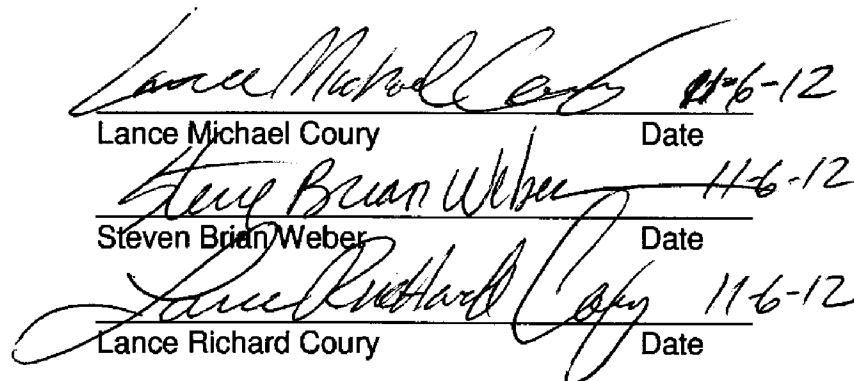 Lance Michael Coury 11-6-12
Lance Michael Coury Date
Steve Brian Weber 11-6-12
Steven Brian Weber Date
Lance Richard Coury 11-6-12
Lance Richard Coury Date